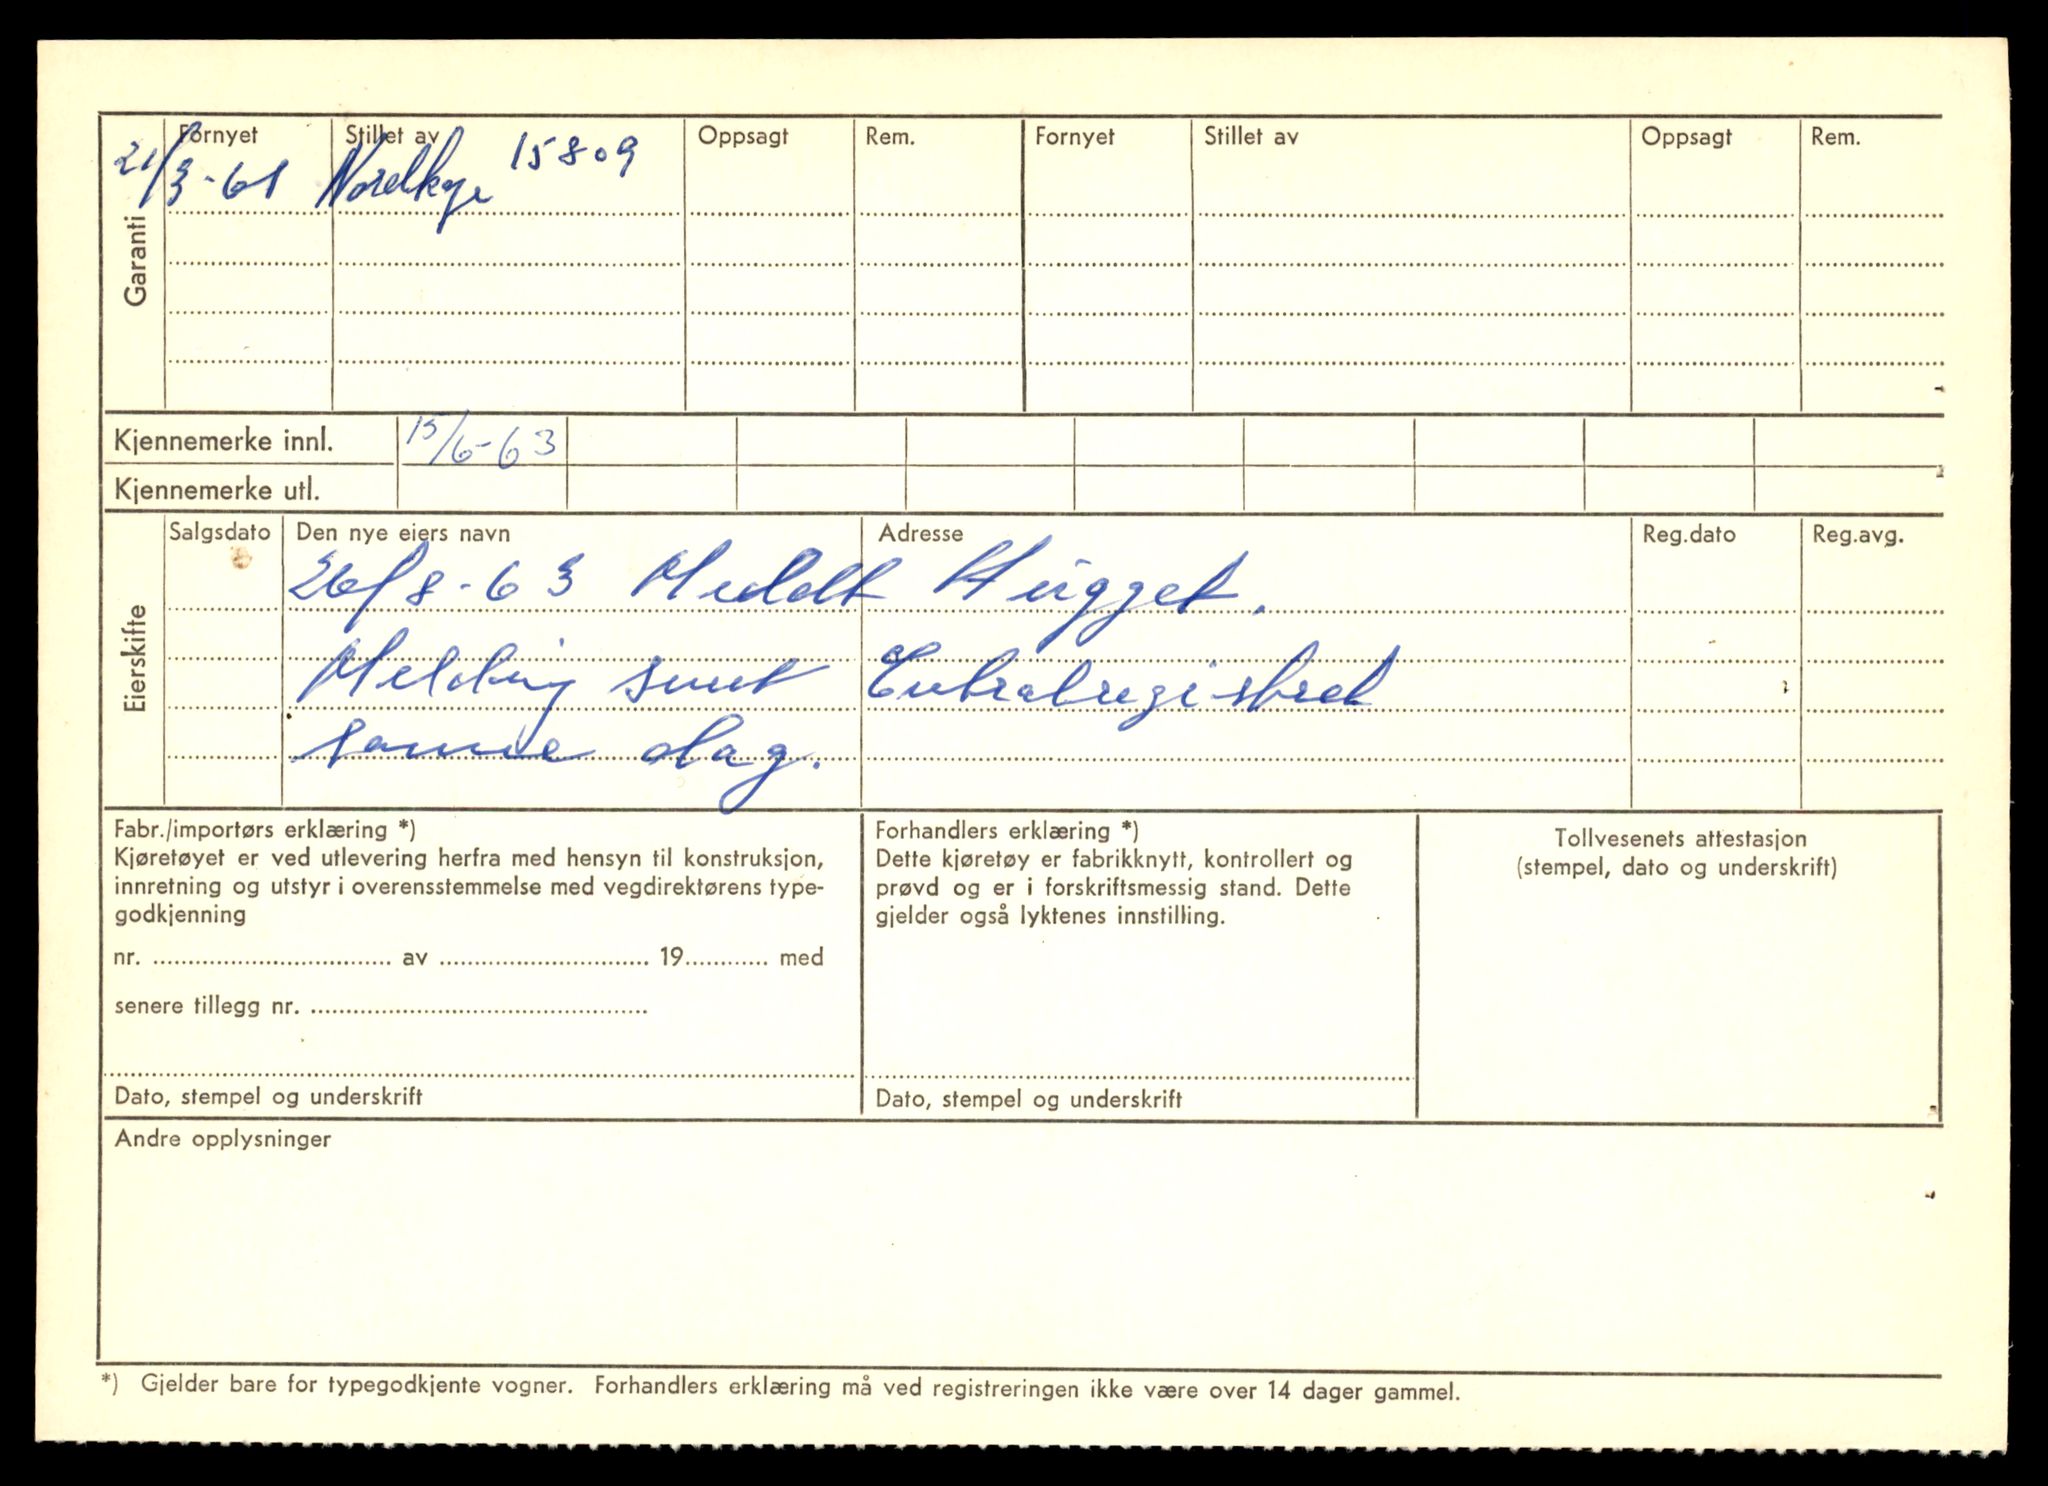 Garanti
Fornyet Stillet av Oppsagt Rem. Fornyet Stillet av Oppsagt Rem.
21/3-61 15809
Kjennemerke innl. 15/6-63
Kjennemerke utl.
Eierskifte
Salgsdato Den nye eiers navn Adresse Reg.dato Reg.avg.
26/8-63 Meldt Hugget.
Melding sent Centralregistret
samme dag.
Fabr./importørs erklæring *)
Kjøretøyet er ved utlevering herfra med hensyn til konstruksjon,
innretning og utstyr i overensstemmelse med vegdirektørens type-
godkjenning
nr. .................................. av .............................. 19............ med
senere tillegg nr. ................................................
Dato, stempel og underskrift
Forhandlers erklæring *)
Dette kjøretøy er fabrikknytt, kontrollert og
prøvd og er i forskriftsmessig stand. Dette
gjelder også lyktenes innstilling.
Dato, stempel og underskrift
Tollvesenets attestasjon
(stempel, dato og underskrift)
Andre opplysninger
*) Gjelder bare for typegodkjente vogner. Forhandlers erklæring må ved registreringen ikke være over 14 dager gammel.